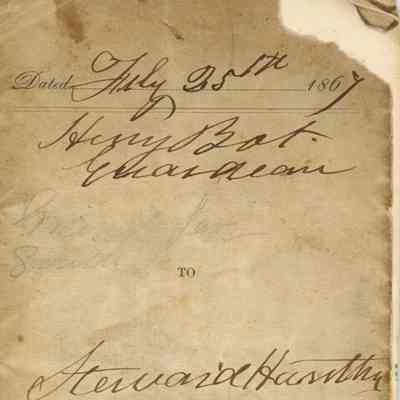 Dated July 25th 1867
Henry Bot.
Guardean
TO
Steward